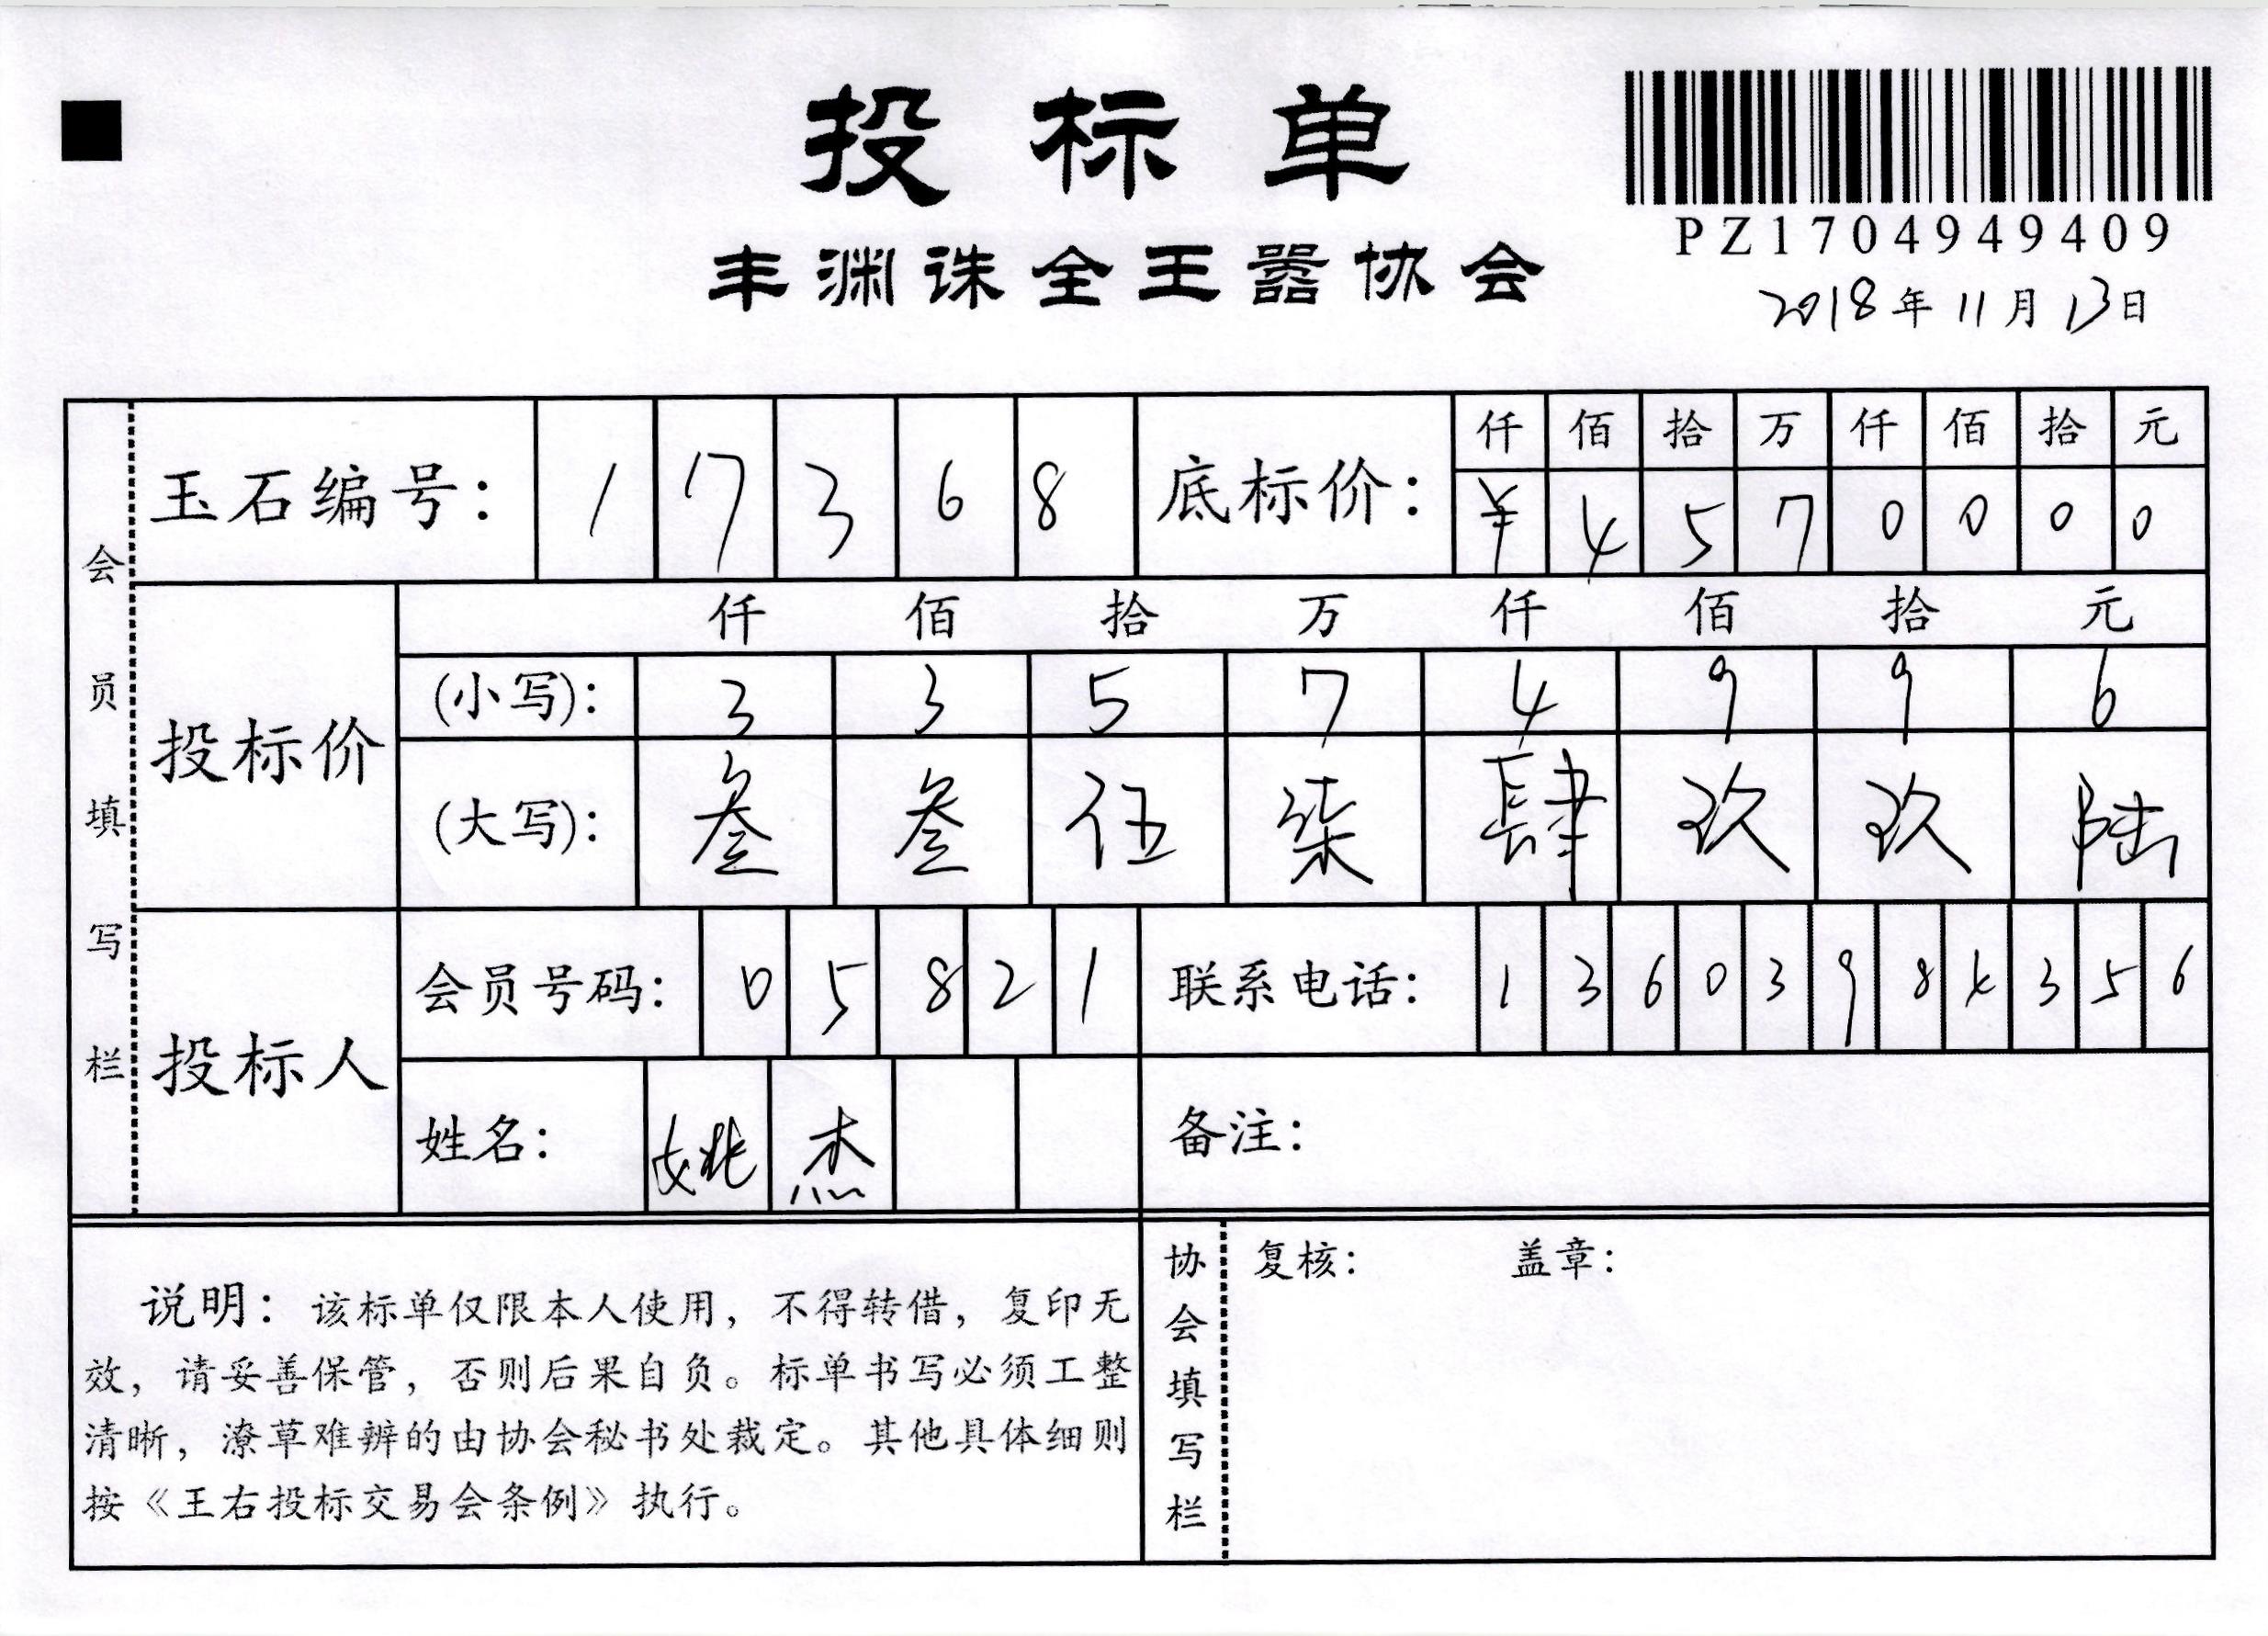 投标单
PZ1704949409
丰渊诛全王嚣协会
2018年11月13日
会员填写栏
玉石编号: 1 7 3 6 8
底标价:
仟 佰 拾 万 仟 佰 拾 元
¥ 4 5 7 0 0 0 0
投标价
仟 佰 拾 万 仟 佰 拾 元
(小写): 3 3 5 7 4 9 9 6
(大写): 叁 叁 伍 柒 肆 玖 玖 陆
投标人
会员号码: 0 5 8 2 1
联系电话: 1 3 6 0 3 9 8 4 3 5 6
姓名: 姚 杰
备注:
说明: 该标单仅限本人使用, 不得转借, 复印无
效, 请妥善保管, 否则后果自负。标单书写必须工整
清晰, 潦草难辨的由协会秘书处裁定。其他具体细则
按《王右投标交易会条例》执行。
协会填写栏
复核: 盖章: